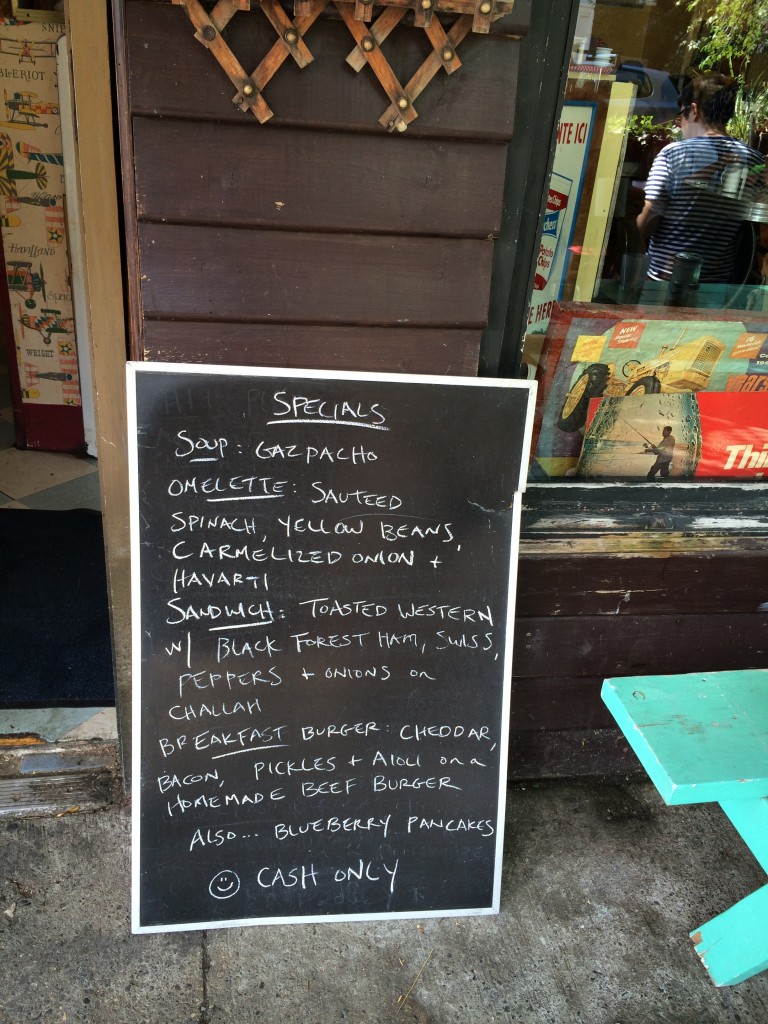 SPECIALS
SOUP: GAZPACHO
OMELETTE: SAUTEED
SPINACH, YELLOW BEANS,
CARMELIZED ONION +
HAVARTI
SANDWICH: TOASTED WESTERN
W/ BLACK FOREST HAM, SWISS,
PEPPERS + ONIONS ON
CHALLAH
BREAKFAST BURGER: CHEDDAR,
BACON, PICKLES + AIOLI ON A
HOMEMADE BEEF BURGER
ALSO... BLUEBERRY PANCAKES
CASH ONLY
BLERIOT
WRIGHT
ITE ICI
Potato
Chips
E HERE
NEW
Thi